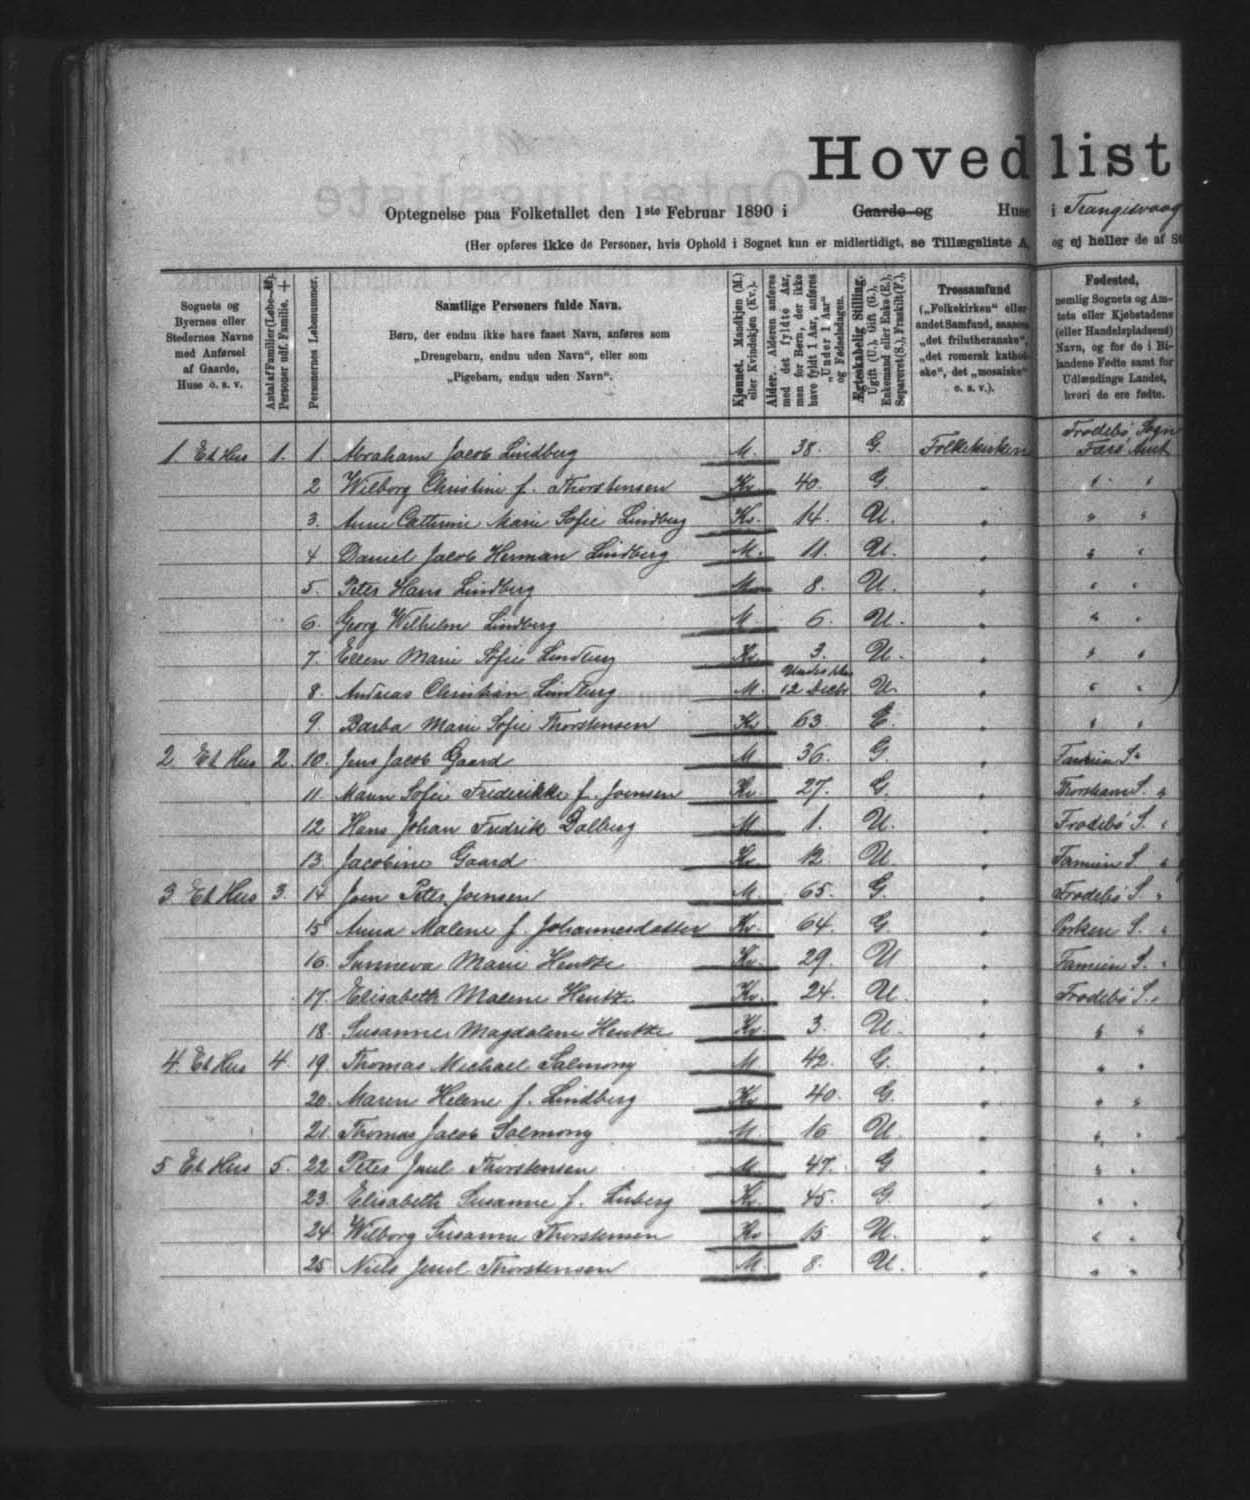 Hovedlist
Optegnelse paa Folketallet den 1ste Februar 1890 i Gaarde og Huse i Trangisvaag
(Her opføres ikke de Personer, hvis Ophold i Sognet kun er midlertidigt, se Tillægsliste A, og ej heller de af
Sognets og Byernes eller Stedernes Navne med Anførsel af Gaarde, Huse o. s. v.
Antal af Familier (Løbe-M). Personer udf. Familie. +
Personernes Løbenummer.
Samtlige Personers fulde Navn.
Børn, der endnu ikke have faaet Navn, anføres som
„Drengebarn, endnu uden Navn“, eller som
„Pigebarn, endnu uden Navn“.
Kjønnet. Mandkjøn (M.) eller Kvindekjøn (Kv.).
Alder. Alderen anføres med det fyldte Aar, men for Børn, der ikke have fyldt 1 Aar, anføres „Under 1 Aar“ og Fødselsdagen.
Ægteskabelig Stilling. Ugift (U.), Gift (G.), Enkemand eller Enke (E.), Separeret (S.), Fraskilt (F.).
Trossamfund („Folkekirken“ eller andet Samfund, saasom „det frilutheranske“, „det romersk katholske“, det „mosaiske“ o. s. v.).
Fødested, nemlig Sognets og Amtets eller Kjøbstadens (eller Handelspladsens) Navn, og for de i Bilandene Fødte samt for Udlændinge Landet, hvori de ere fødte.
1. Et Hus 1. 1. Abraham Jacob Lindberg M. 38. G. Folkekirken Frodebø Sogn Færø Amt
2 Wilborg Christine f. Thorstensen Kv. 40. G. " " "
3. Anne Cathrine Marie Sofie Lindberg Kv. 14. U. " " "
4 Daniel Jacob Herman Lindberg M. 11. U. " " "
5. Peter Hans Lindberg M. 8. U. " " "
6. Georg Wilhelm Lindberg M. 6. U. " " "
7. Ellen Marie Sofie Lindberg Kv. 3. U. " " "
8. Andreas Christian Lindberg M. Under 1 Aar 12 Decbr U. " " "
9. Barba Marie Sofie Thorstensen Kv. 63. E. " " "
2 Et Hus 2. 10. Jens Jacob Gaard M. 36. G. " Famien S. "
11. Maren Sofie Frederikke f. Joensen Kv. 27. G. " Thorshavn S. "
12 Hans Johan Fredrik Dalberg M. 1. U. " Frodebø S. "
13. Jacobine Gaard Kv. 12 U. " Famien S. "
3 Et Hus 3. 14 Joen Peter Joensen M. 65. G. " Frodebø S. "
15 Anna Malene f. Johannesdatter Kv. 64. G. " Porkere S. "
16. Sunneva Marie Hentze Kv. 29. U " Famien S. "
17. Elisabeth Malene Hentze Kv. 24. U. " Frodebø S. "
18. Susanne Magdalene Hentze Kv. 3. U. " " "
4. Et Hus 4. 19 Thomas Michael Salmony M 42. G. " " "
20. Maren Helene f. Lindberg Kv 40. G. " " "
21. Thomas Jacob Salmony M. 16 U. " " "
5 Et Hus 5. 22 Peter Juul Thorstensen M. 47. G " " "
23. Elisabeth Susanne f. Kv. 45. G " " "
24 Wilborg Susanne Thorstensen Kv 15 U. " " "
25 Niels Juul Thorstensen M. 8. U. " " "